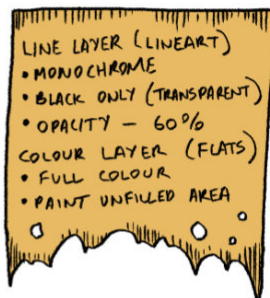 LINE LAYER (LINEART)
• MONOCHROME
• BLACK ONLY (TRANSPARENT)
• OPACITY – 60%
COLOUR LAYER (FLATS)
• FULL COLOUR
• PAINT UNFILLED AREA